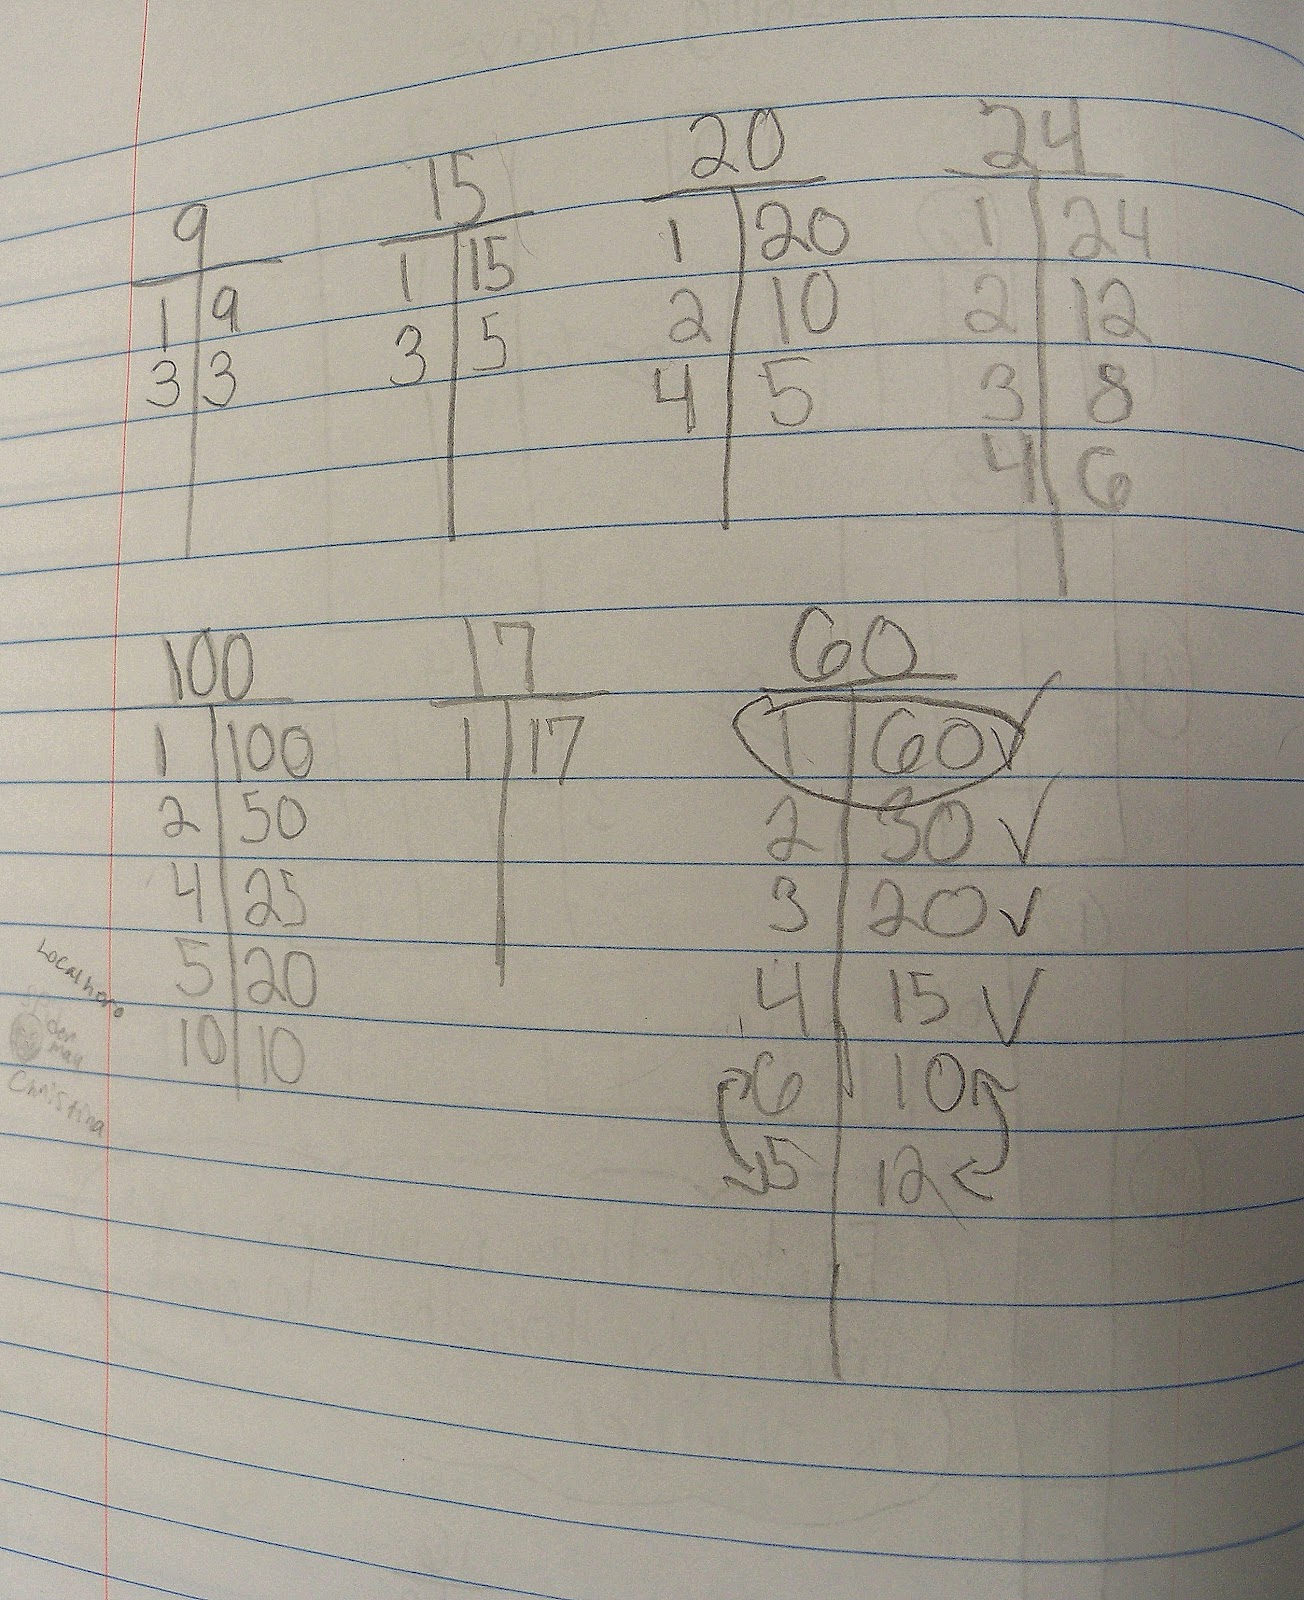 9
1 9
3 3
15
1 15
3 5
20
1 20
2 10
4 5
24
1 24
2 12
3 8
4 6
100
1 100
2 50
4 25
5 20
10 10
17
1 17
60
1 60 ✓
2 30 ✓
3 20 ✓
4 15 ✓
6 10
5 12
Christina